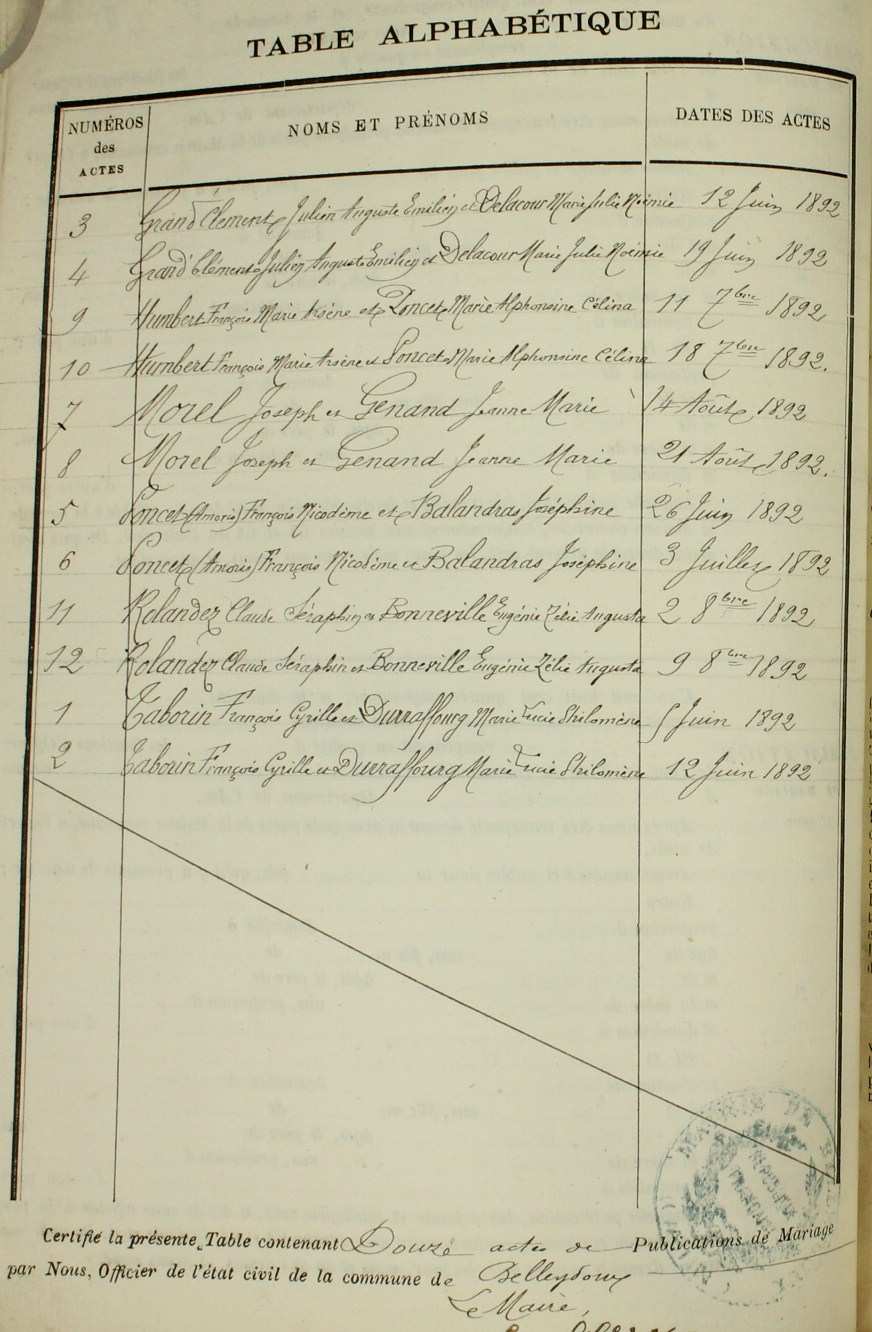 TABLE ALPHABÉTIQUE
NUMÉROS des ACTES NOMS ET PRÉNOMS DATES DES ACTES
3 Grand Clément Julien Auguste Emilien et Delacour Marie Julie Noémie 12 Juin 1892
4 Grand Clément Julien Auguste Emilien et Delacour Marie Julie Noémie 19 Juin 1892
9 Humbert François Marie Arsène et Poncet Marie Alphonsine Célina 11 7bre 1892
10 Humbert François Marie Arsène et Poncet Marie Alphonsine Célina 18 7bre 1892.
7 Morel Joseph et Genand Jeanne Marie 14 Août 1892
8 Morel Joseph et Genand Jeanne Marie 21 Août 1892.
5 Poncet (Amoris) François Nicodème et Balandras Joséphine 26 Juin 1892
6 Poncet (Amoris) François Nicodème et Balandras Joséphine 3 Juillet 1892
11 Rolandez Claude Séraphin et Bonneville Eugénie Zélie Augusta 2 8bre 1892
12 Rolandez Claude Séraphin et Bonneville Eugénie Zélie Augusta 9 8bre 1892
1 Taborin François Cyrille et Durraffourg Marie Lucie Philomène 5 Juin 1892
2 Taborin François Cyrille et Durraffourg Marie Lucie Philomène 12 Juin 1892
Certifié la présente Table contenant Douze actes de Publications de Mariage
par Nous, Officier de l'état civil de la commune de Belleydoux
Le Maire,